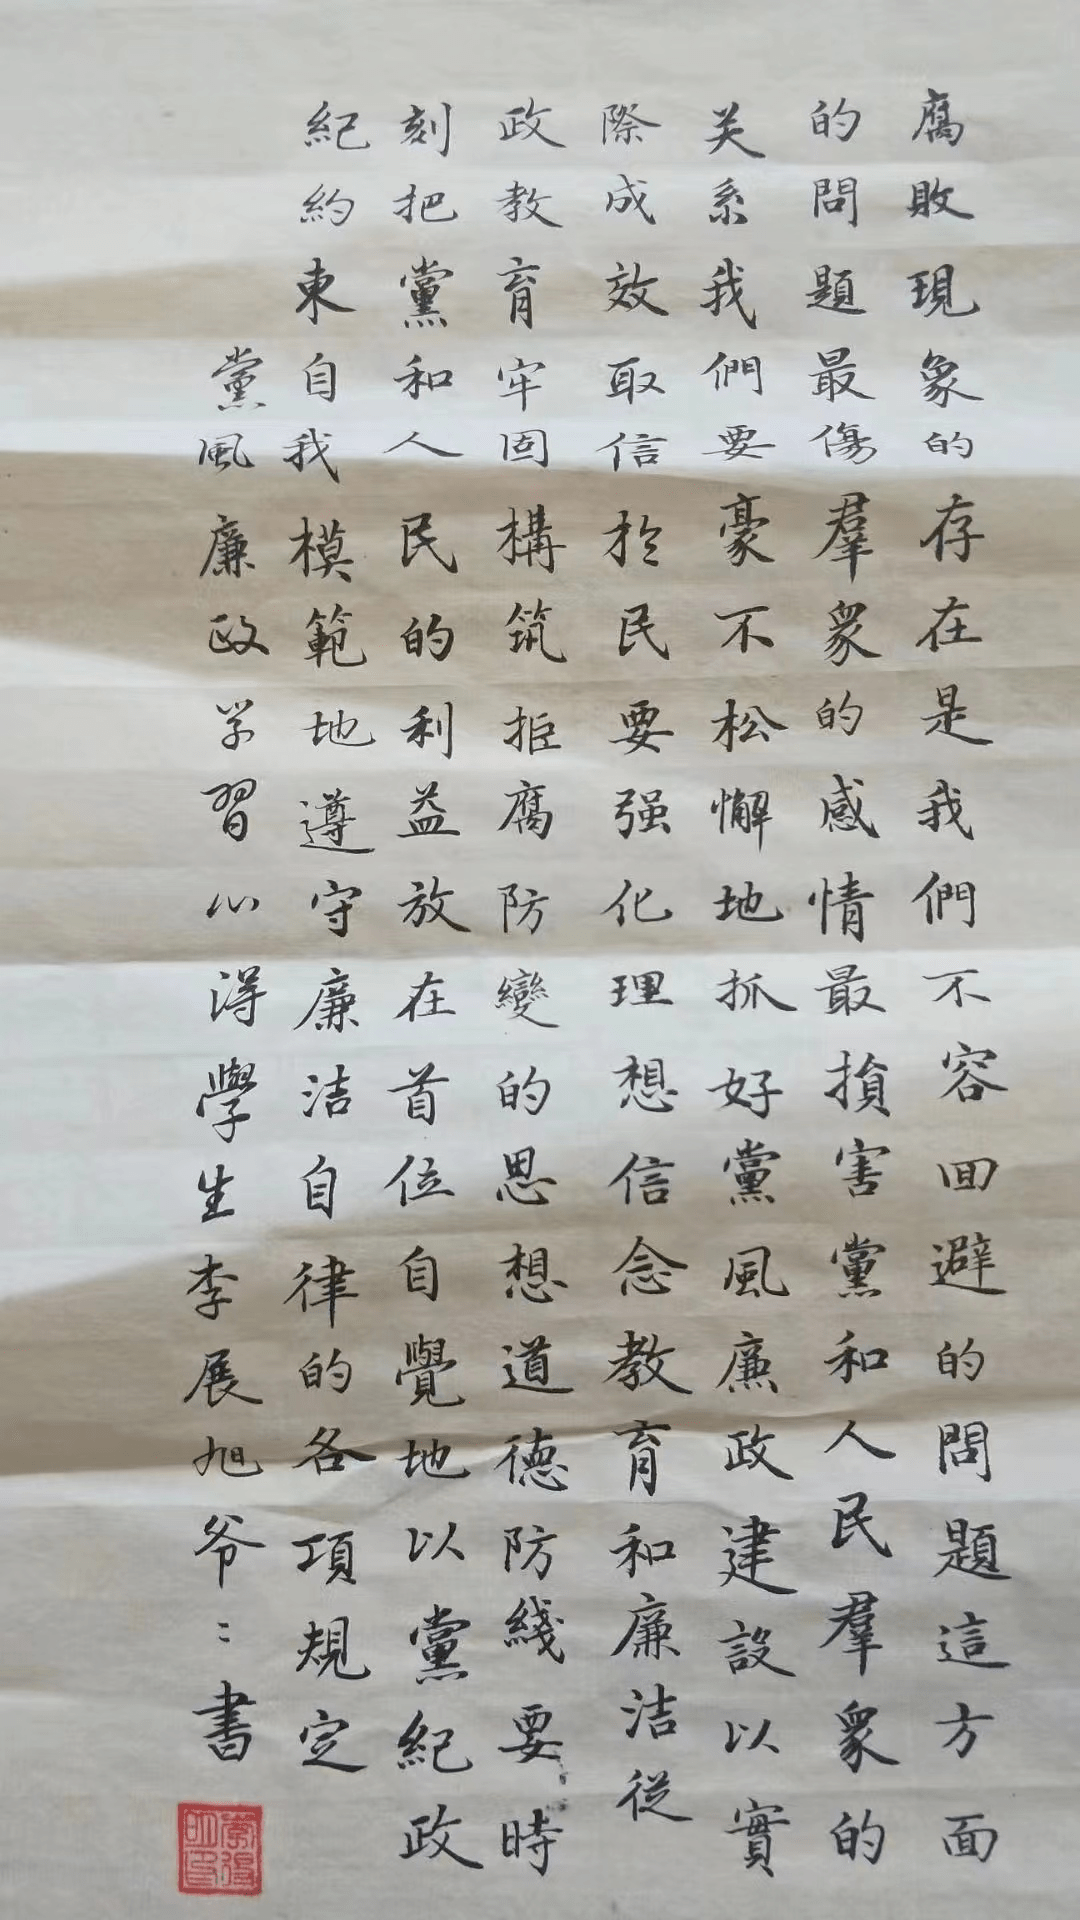 腐敗現象的存在是我們不容回避的問題這方面
的問題最傷羣衆的感情最損害黨和人民羣衆的
关系我們要豪不松懈地抓好黨風廉政建設以實
際成效取信於民要强化理想信念教育和廉洁從
政教育牢固構筑拒腐防變的思想道德防綫要時
刻把黨和人民的利益放在首位自覺地以黨紀政
紀約束自我模範地遵守廉洁自律的各項規定
黨風廉政学習心得學生李展旭爷〻書